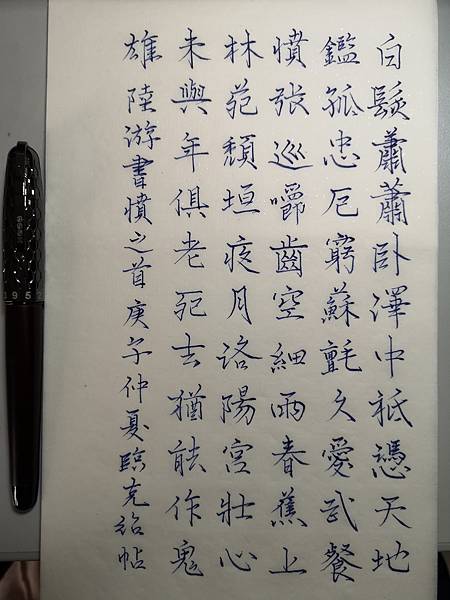 白髮蕭蕭臥澤中祗憑天地
鑑孤忠厄窮蘇氈久愛武餐
憤張巡嚼齒空細雨春蕉上
林苑頹垣夜月洛陽宮壯心
未與年俱老死去猶能作鬼
雄陸游書憤之首庚子仲夏臨克帖